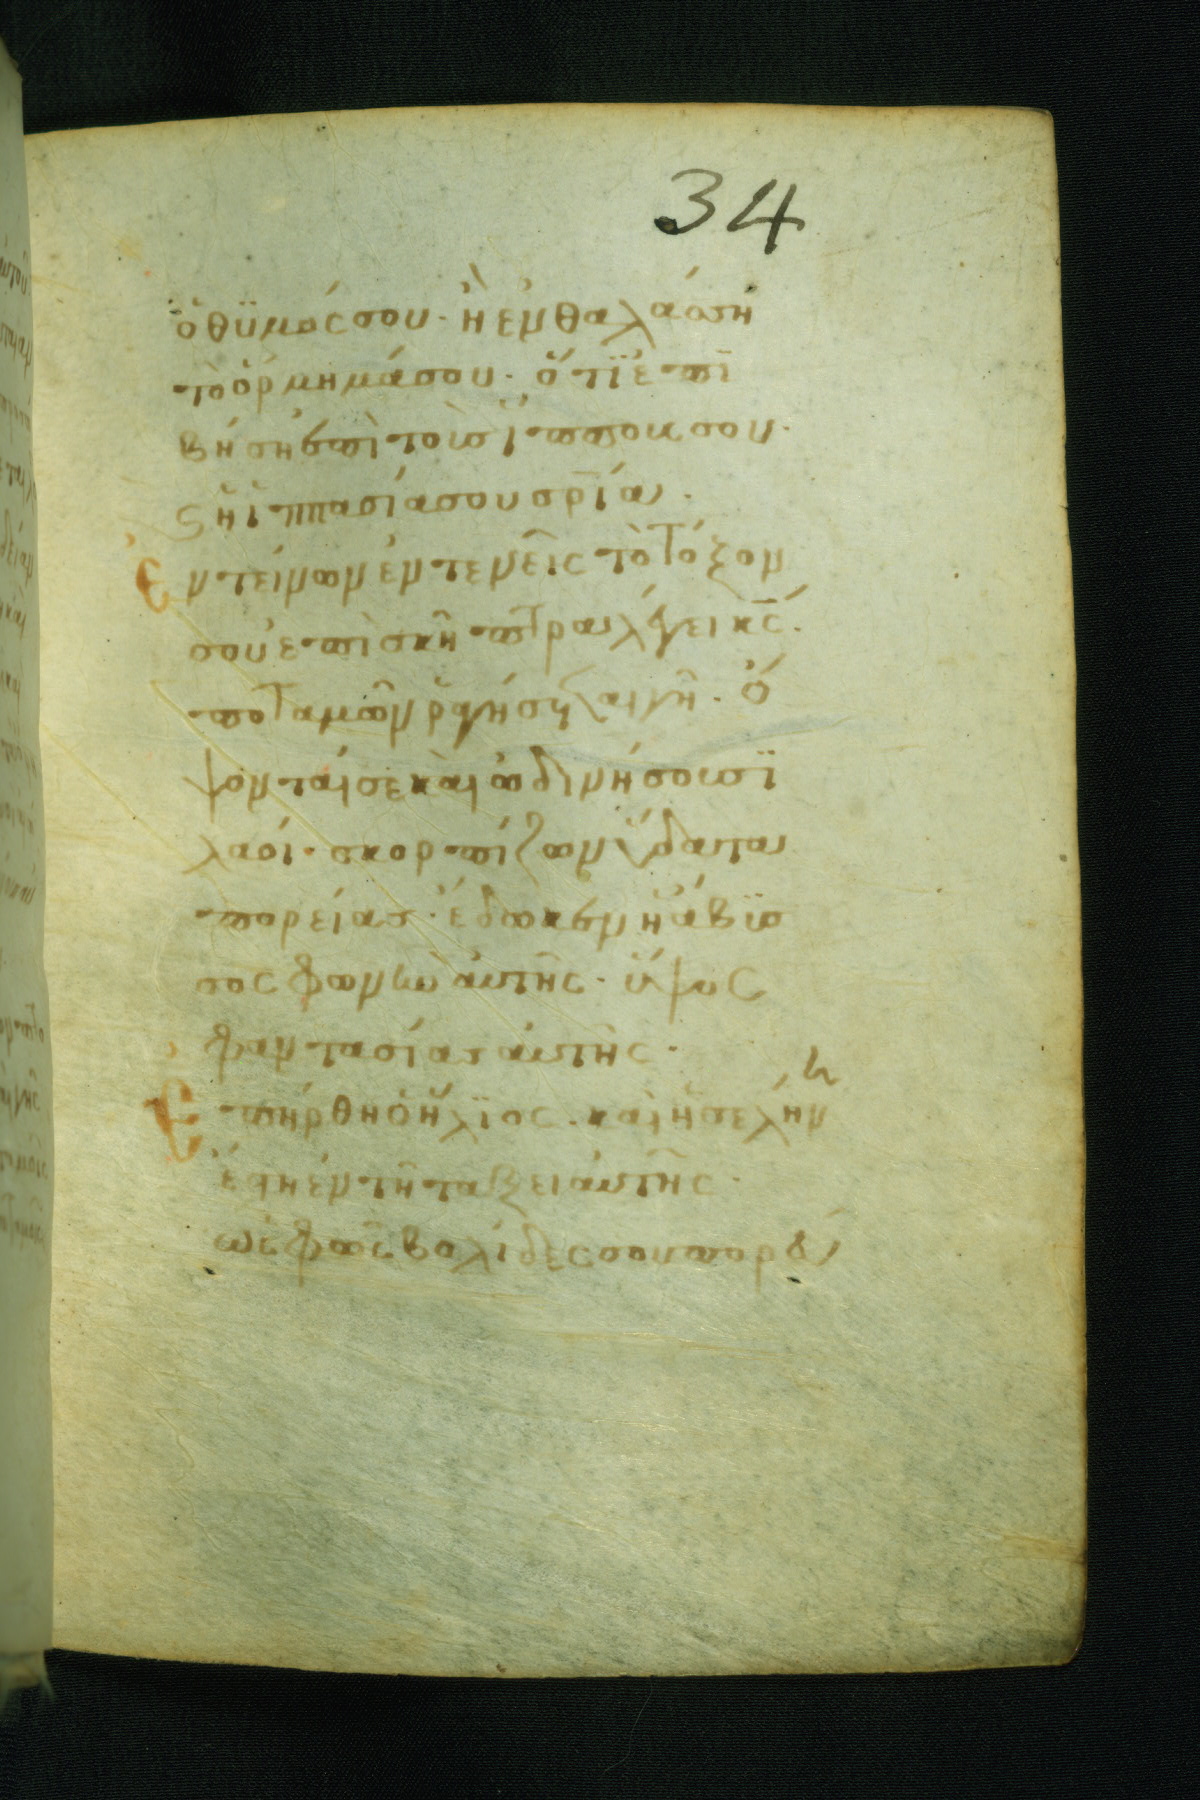 34
ὁ θϋμός σου· ἢ ἐν θαλάσση
τὸ ὅρμημά σου· ὅτϊ ἐπϊ
βήση ἐπὶ τοὺσ ἵππουσ σου·
ϛ ἡ ἱππασία σου σρ̅ία·
Ἐντείνων ἐντενεῖς τὸ τόξον
σου ἐπὶ σκῆπτρα λέγει κ̅ς·
ποταμῶν ῥαγήσεται γῆ· ὄ
ψονταί σε καὶ ὠδινήσουσϊ
λαοί· σκορπίζων ὕδατα
πορείασ· ἔδωκεν ἡ ἄβϋσ
σος φωνὴν ἀυτῆς· ὕψος
φαντασίασ ἀυτῆς·
Ἐπήρθη ὁ ἥλϊος· καὶ ἡ σελήν
η
ἔστη ἐν τῆ τάξει ἀυτῆς·
ὡς φῶς βολίδες σου πορεύ